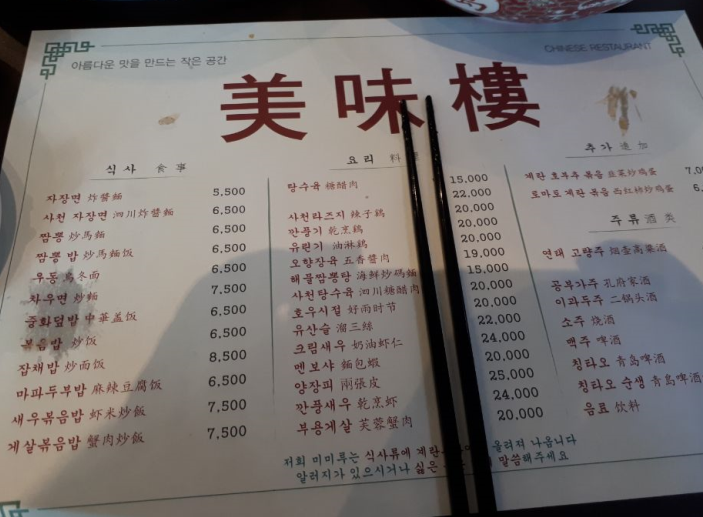 아름다운 맛을 만드는 작은 공간
CHINESE RESTAURANT
美味樓
식사 食事
자장면 炸醬麵 5,500
사천 자장면 泗川炸醬麵 6,500
짬뽕 炒馬麵 6,500
짬뽕 밥 炒馬麵饭 6,500
우동 烏冬面 6,500
차우면 炒麵 7,500
중화덮밥 中華盖饭 6,500
볶음밥 炒饭 6,500
잡채밥 炒面饭 8,500
마파두부밥 麻辣豆腐饭 6,500
새우볶음밥 虾米炒飯 7,500
게살볶음밥 蟹肉炒飯 7,500
요리 料
탕수육 糖醋肉 15,000
22,000
사천라즈지 辣子鷄 20,000
깐풍기 乾烹鷄 20,000
유린기 油淋鷄 20,000
오향장육 五香醬肉 19,000
해물짬뽕탕 海鮮炒碼麵 15,000
사천탕수육 泗川糖醋肉 20,000
호우시절 好雨时节 20,000
유산슬 溜三絲 22,000
크림새우 奶油虾仁 24,000
멘보샤 麵包蝦 20,000
양장피 兩張皮
깐풍새우 乾烹虾 24,000
부용게살 芙蓉蟹肉 20,000
저희 미미루는 식사류에 계란 올려져 나옵니다
알러지가 있으시거나 싫은 말씀해주세요
추가 追加
계란 호부추 볶음 韭菜炒鸡蛋
토마토 계란 볶음 西红柿炒鸡蛋
주류 酒类
연태 고량주 烟台高粱酒
공부가주 孔府家酒
이과두주 二锅头酒
소주 烧酒
맥주 啤酒
칭타오 青岛啤酒
칭타오 순생 青岛啤酒
음료 饮料